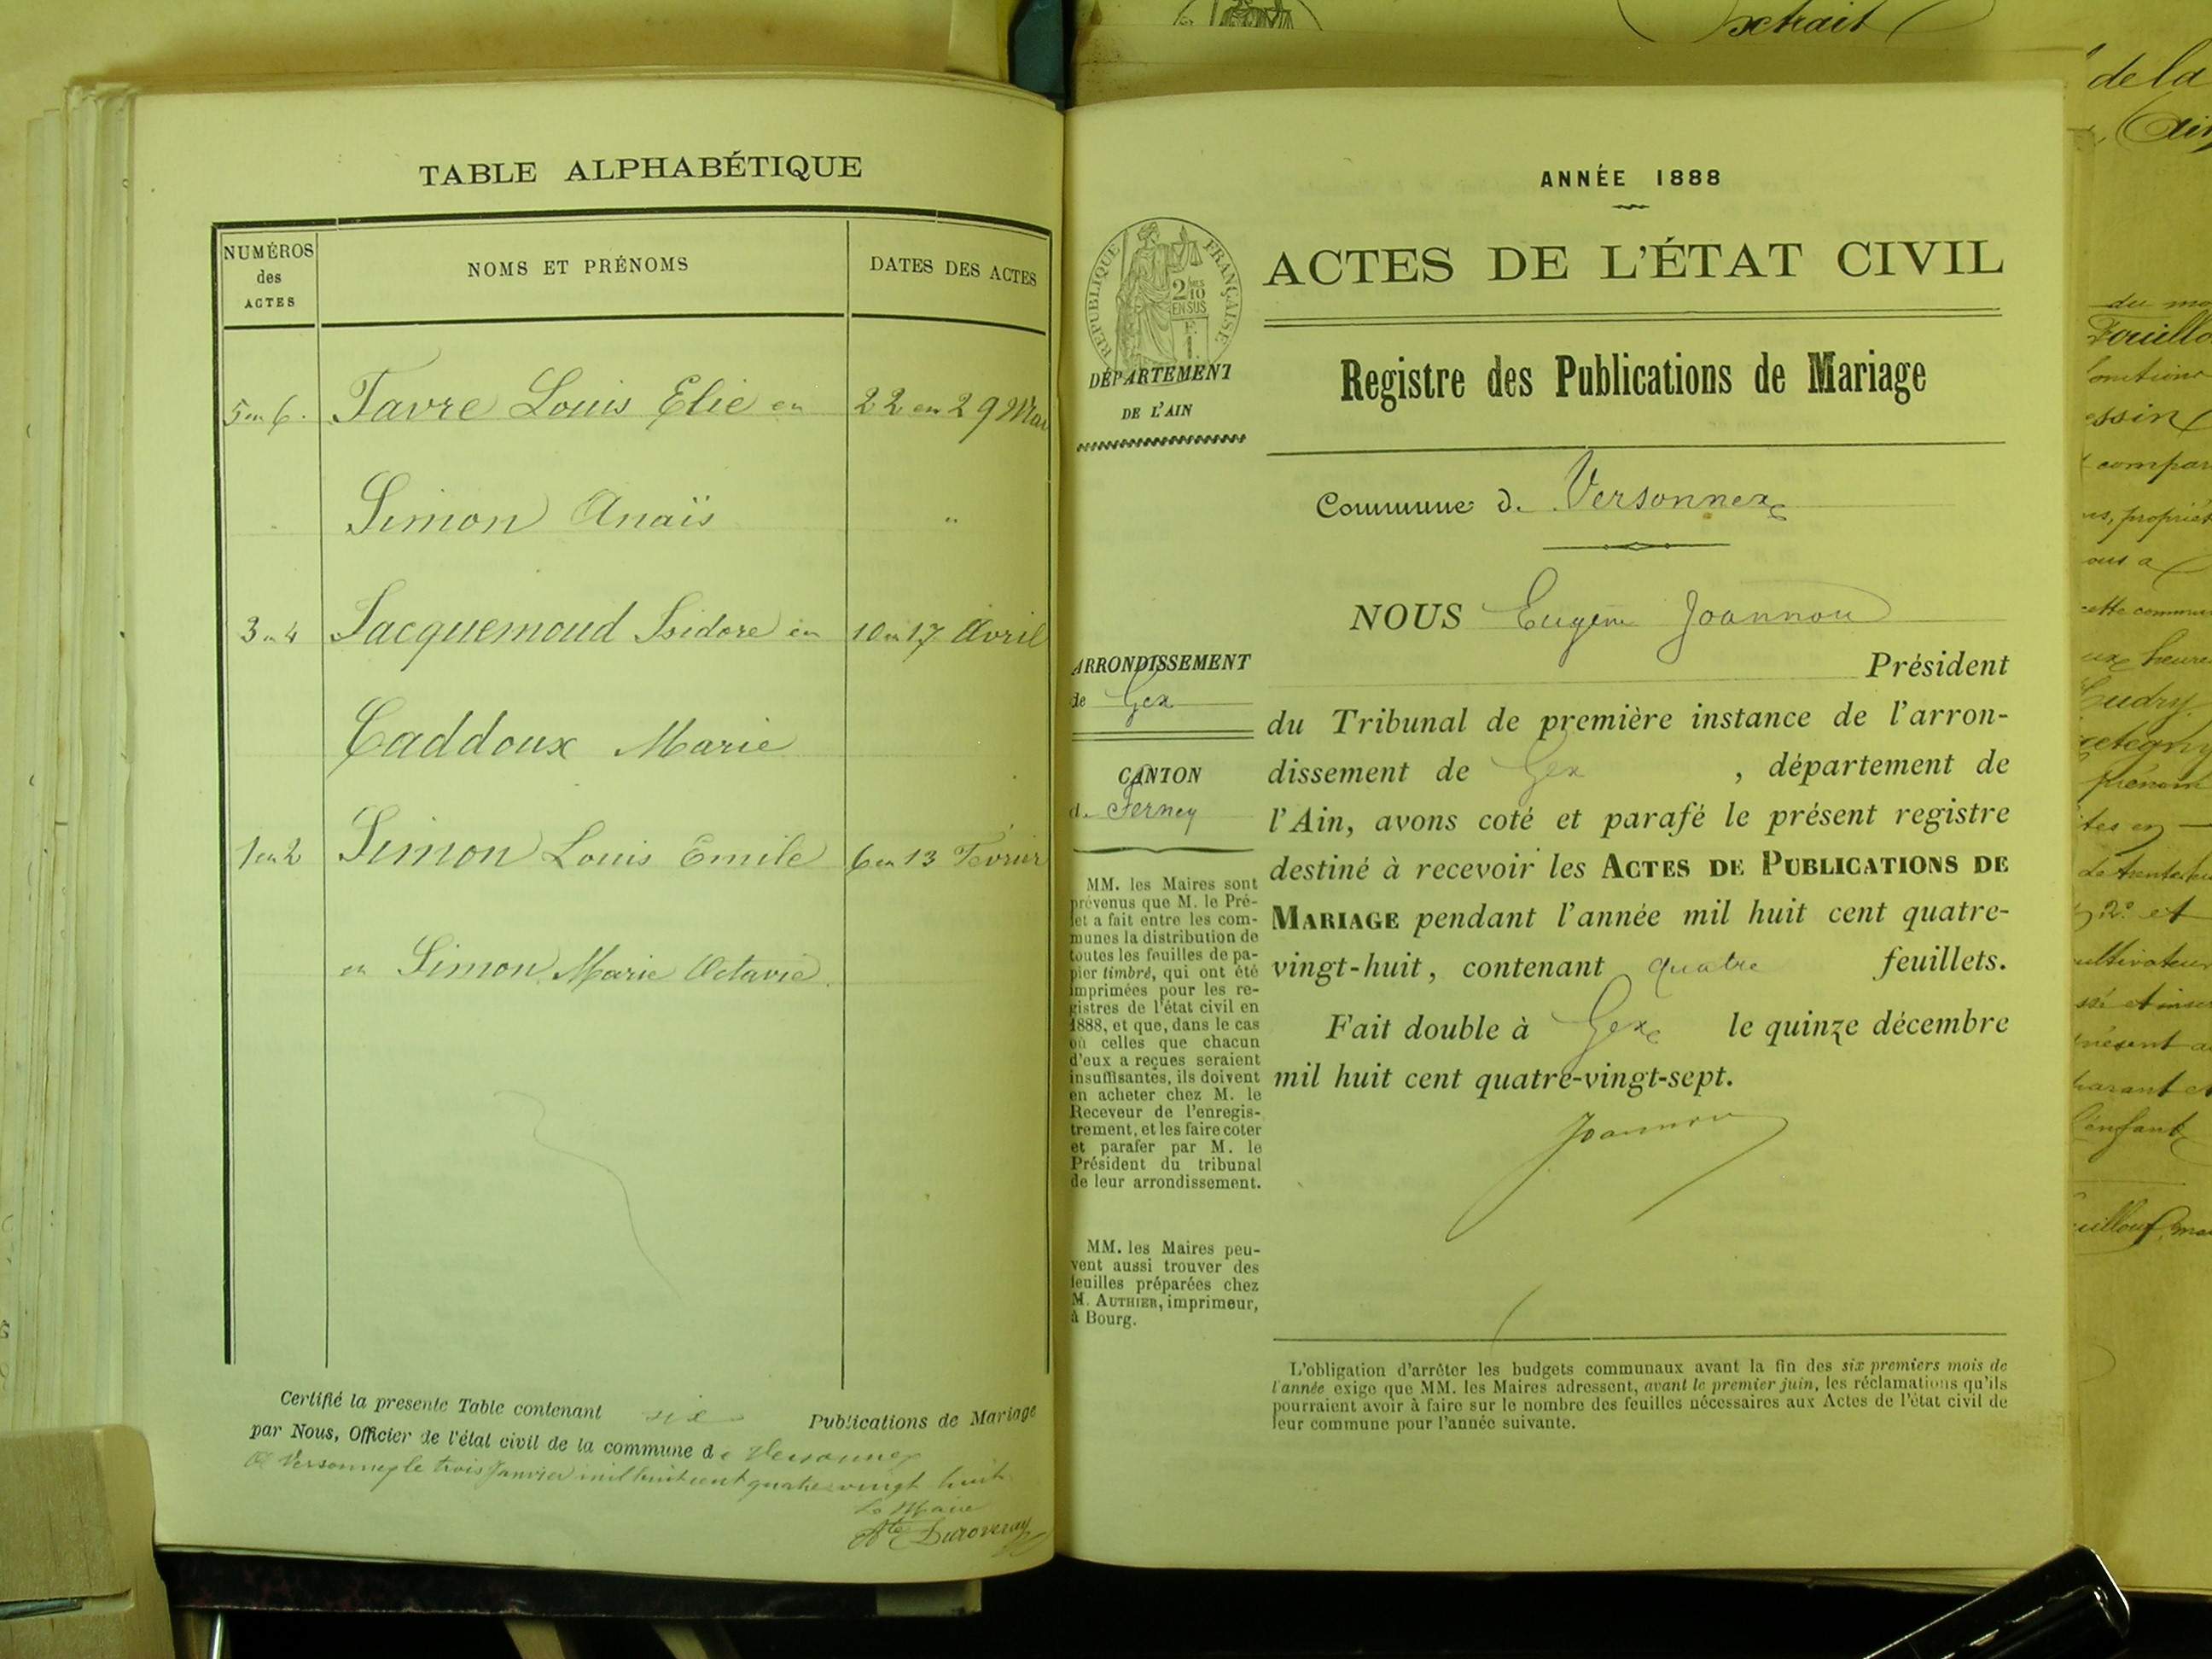 TABLE ALPHABÉTIQUE
NUMÉROS
des
ACTES
NOMS ET PRÉNOMS
DATES DES ACTES
5 en 6. Favre Louis Elie en 22 en 29 Mai
Simon Anaïs "
3 en 4 Jacquemoud Isidore en 10 en 17 Avril
Caddoux Marie
1 en 2 Simon Louis Emile 6 en 13 Février
en Simon Marie Octavie
Certifié la presente Table contenant six Publications de Mariage
par Nous, Officier de l'état civil de la commune de Versonnex
A Versonnex le trois Janvier mil huit cent quatre vingt huit
Le Maire
ANNÉE 1888
RÉPUBLIQUE FRANÇAISE
2/10
EN SUS
F.
1.
DÉPARTEMENT
DE L'AIN
ACTES DE L'ÉTAT CIVIL
Registre des Publications de Mariage
Commune de Versonnex
NOUS Eugène Joannon
Président
ARRONDISSEMENT
de Gex
CANTON
de Ferney
du Tribunal de première instance de l'arron-
dissement de Gex , département de
l'Ain, avons coté et parafé le présent registre
destiné à recevoir les ACTES DE PUBLICATIONS DE
MARIAGE pendant l'année mil huit cent quatre-
vingt-huit, contenant quatre feuillets.
Fait double à Gex le quinze décembre
mil huit cent quatre-vingt-sept.
Joannon
MM. les Maires sont
prévenus que M. le Pré-
fet a fait entre les com-
munes la distribution de
toutes les feuilles de pa-
pier timbré, qui ont été
imprimées pour les re-
gistres de l'état civil en
1888, et que, dans le cas
où celles que chacun
d'eux a reçues seraient
insuffisantes, ils doivent
en acheter chez M. le
Receveur de l'enregis-
trement, et les faire coter
et parafer par M. le
Président du tribunal
de leur arrondissement.
MM. les Maires peu-
vent aussi trouver des
feuilles préparées chez
M. AUTHIER, imprimeur,
à Bourg.
L'obligation d'arrêter les budgets communaux avant la fin des six premiers mois de
l'année exige que MM. les Maires adressent, avant le premier juin, les réclamations qu'ils
pourraient avoir à faire sur le nombre des feuilles nécessaires aux Actes de l'état civil de
leur commune pour l'année suivante.
Extrait
de la
du
compar
cette commun
heure
2° et
présent
l'enfant